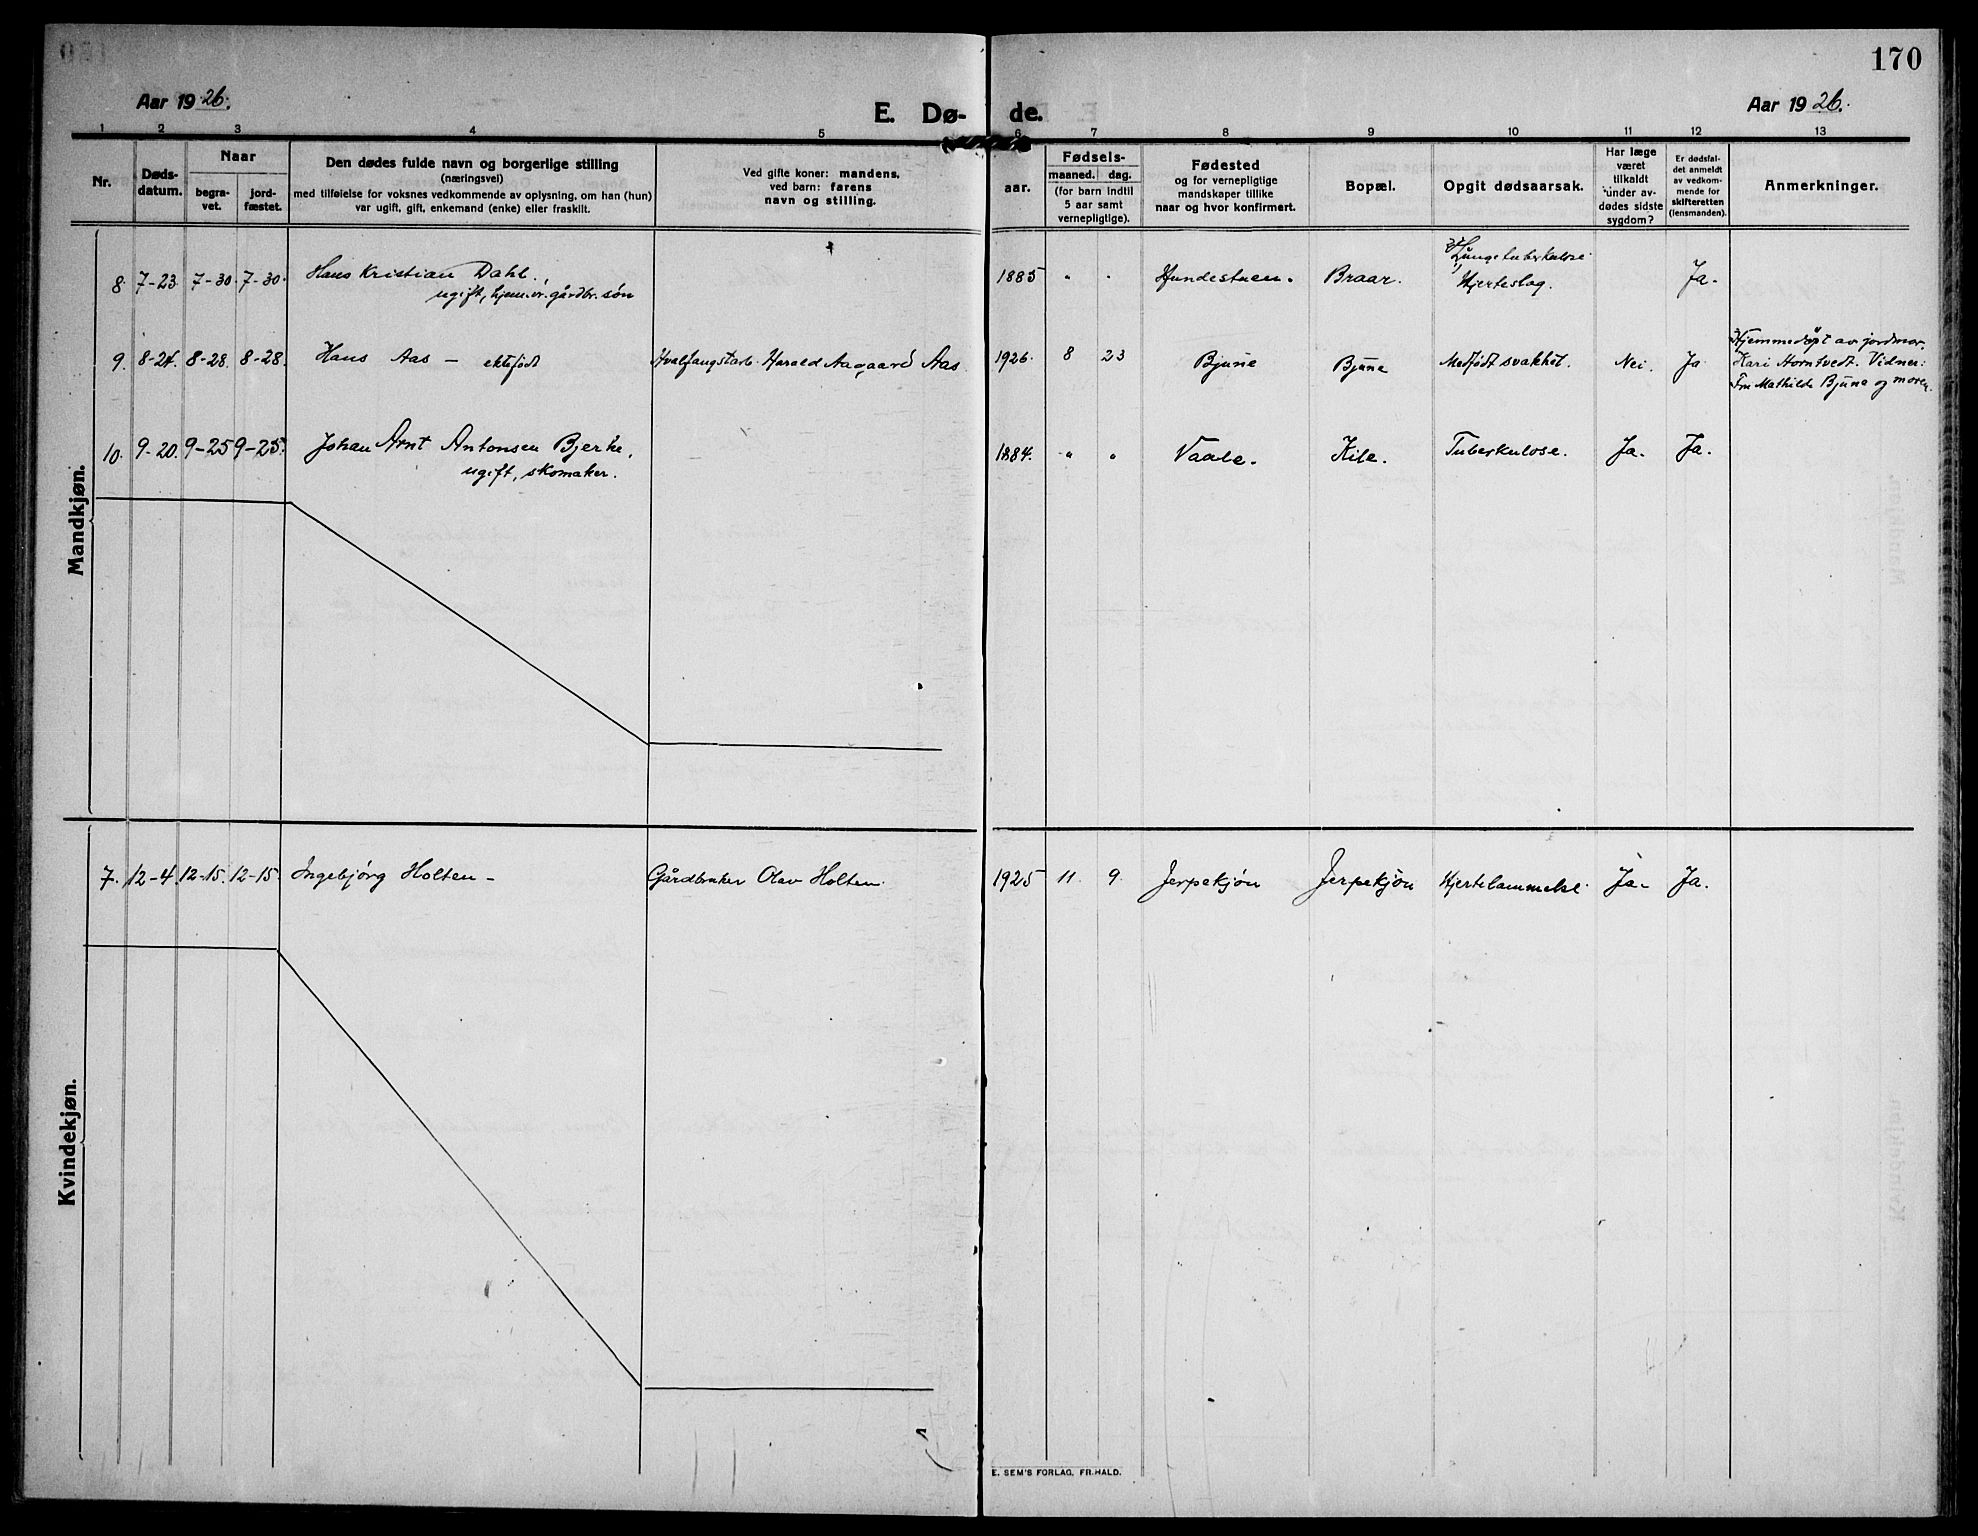 170
Aar 1926.
E. Dø-
de.
Aar 1926.
1 2 3 4 5 6 7 8 9 10 11 12 13
Nr.
Døds-
datum.
Naar
begra-
vet.
jord-
fæstet.
Den dødes fulde navn og borgerlige stilling
(næringsvei)
med tilføielse for voksnes vedkommende av oplysning, om han (hun)
var ugift, gift, enkemand (enke) eller fraskilt.
Ved gifte koner: mandens,
ved barn: farens
navn og stilling.
Fødsels-
aar.
maaned. dag.
(for barn indtil
5 aar samt
vernepligtige).
Fødested
og for vernepligtige
mandskaper tillike
naar og hvor konfirmert.
Bopæl.
Opgit dødsaarsak.
Har læge
været
tilkaldt
under av-
dødes sidste
sygdom?
Er dødsfal-
det anmeldt
av vedkom-
mende for
skifteretten
(lensmanden).
Anmerkninger.
Mandkjøn.
8. 7-23. 7-30. 7-30. Hans Kristian Dahl.,
ugift, gårdbr. søn
1885 " " Hundestuen. Braar.
Lungetuberkulose
Hjerteslag.
Ja.
9. 8-24. 8-28. 8-28. Hans Aas – ektefødt Hvalfangstarb. Harald Aagaard Aas 1926. 8 23 Bjune Bjune Medfødt svakhet. Nei. Ja
Hjemmedøpt av jordmor
Kari Horntvedt. Vidner:
Fru Mathilde Bjune og moren.
10. 9-20. 9-25 9-25. Johan Arnt Antonsen Bjerke,
ugift, skomaker.
1884. " " Vaale. Kile. Tuberkulose. Ja. Ja.
Kvindekjøn.
7. 12-4 12-15. 12-15. Ingebjørg Holten – Gårdbruker Olav Holten. 1925 11. 9. Jerpekjøn Jerpekjøn Hjertelammelse. Ja. Ja.
E. SEM'S FORLAG, FR.HALD.